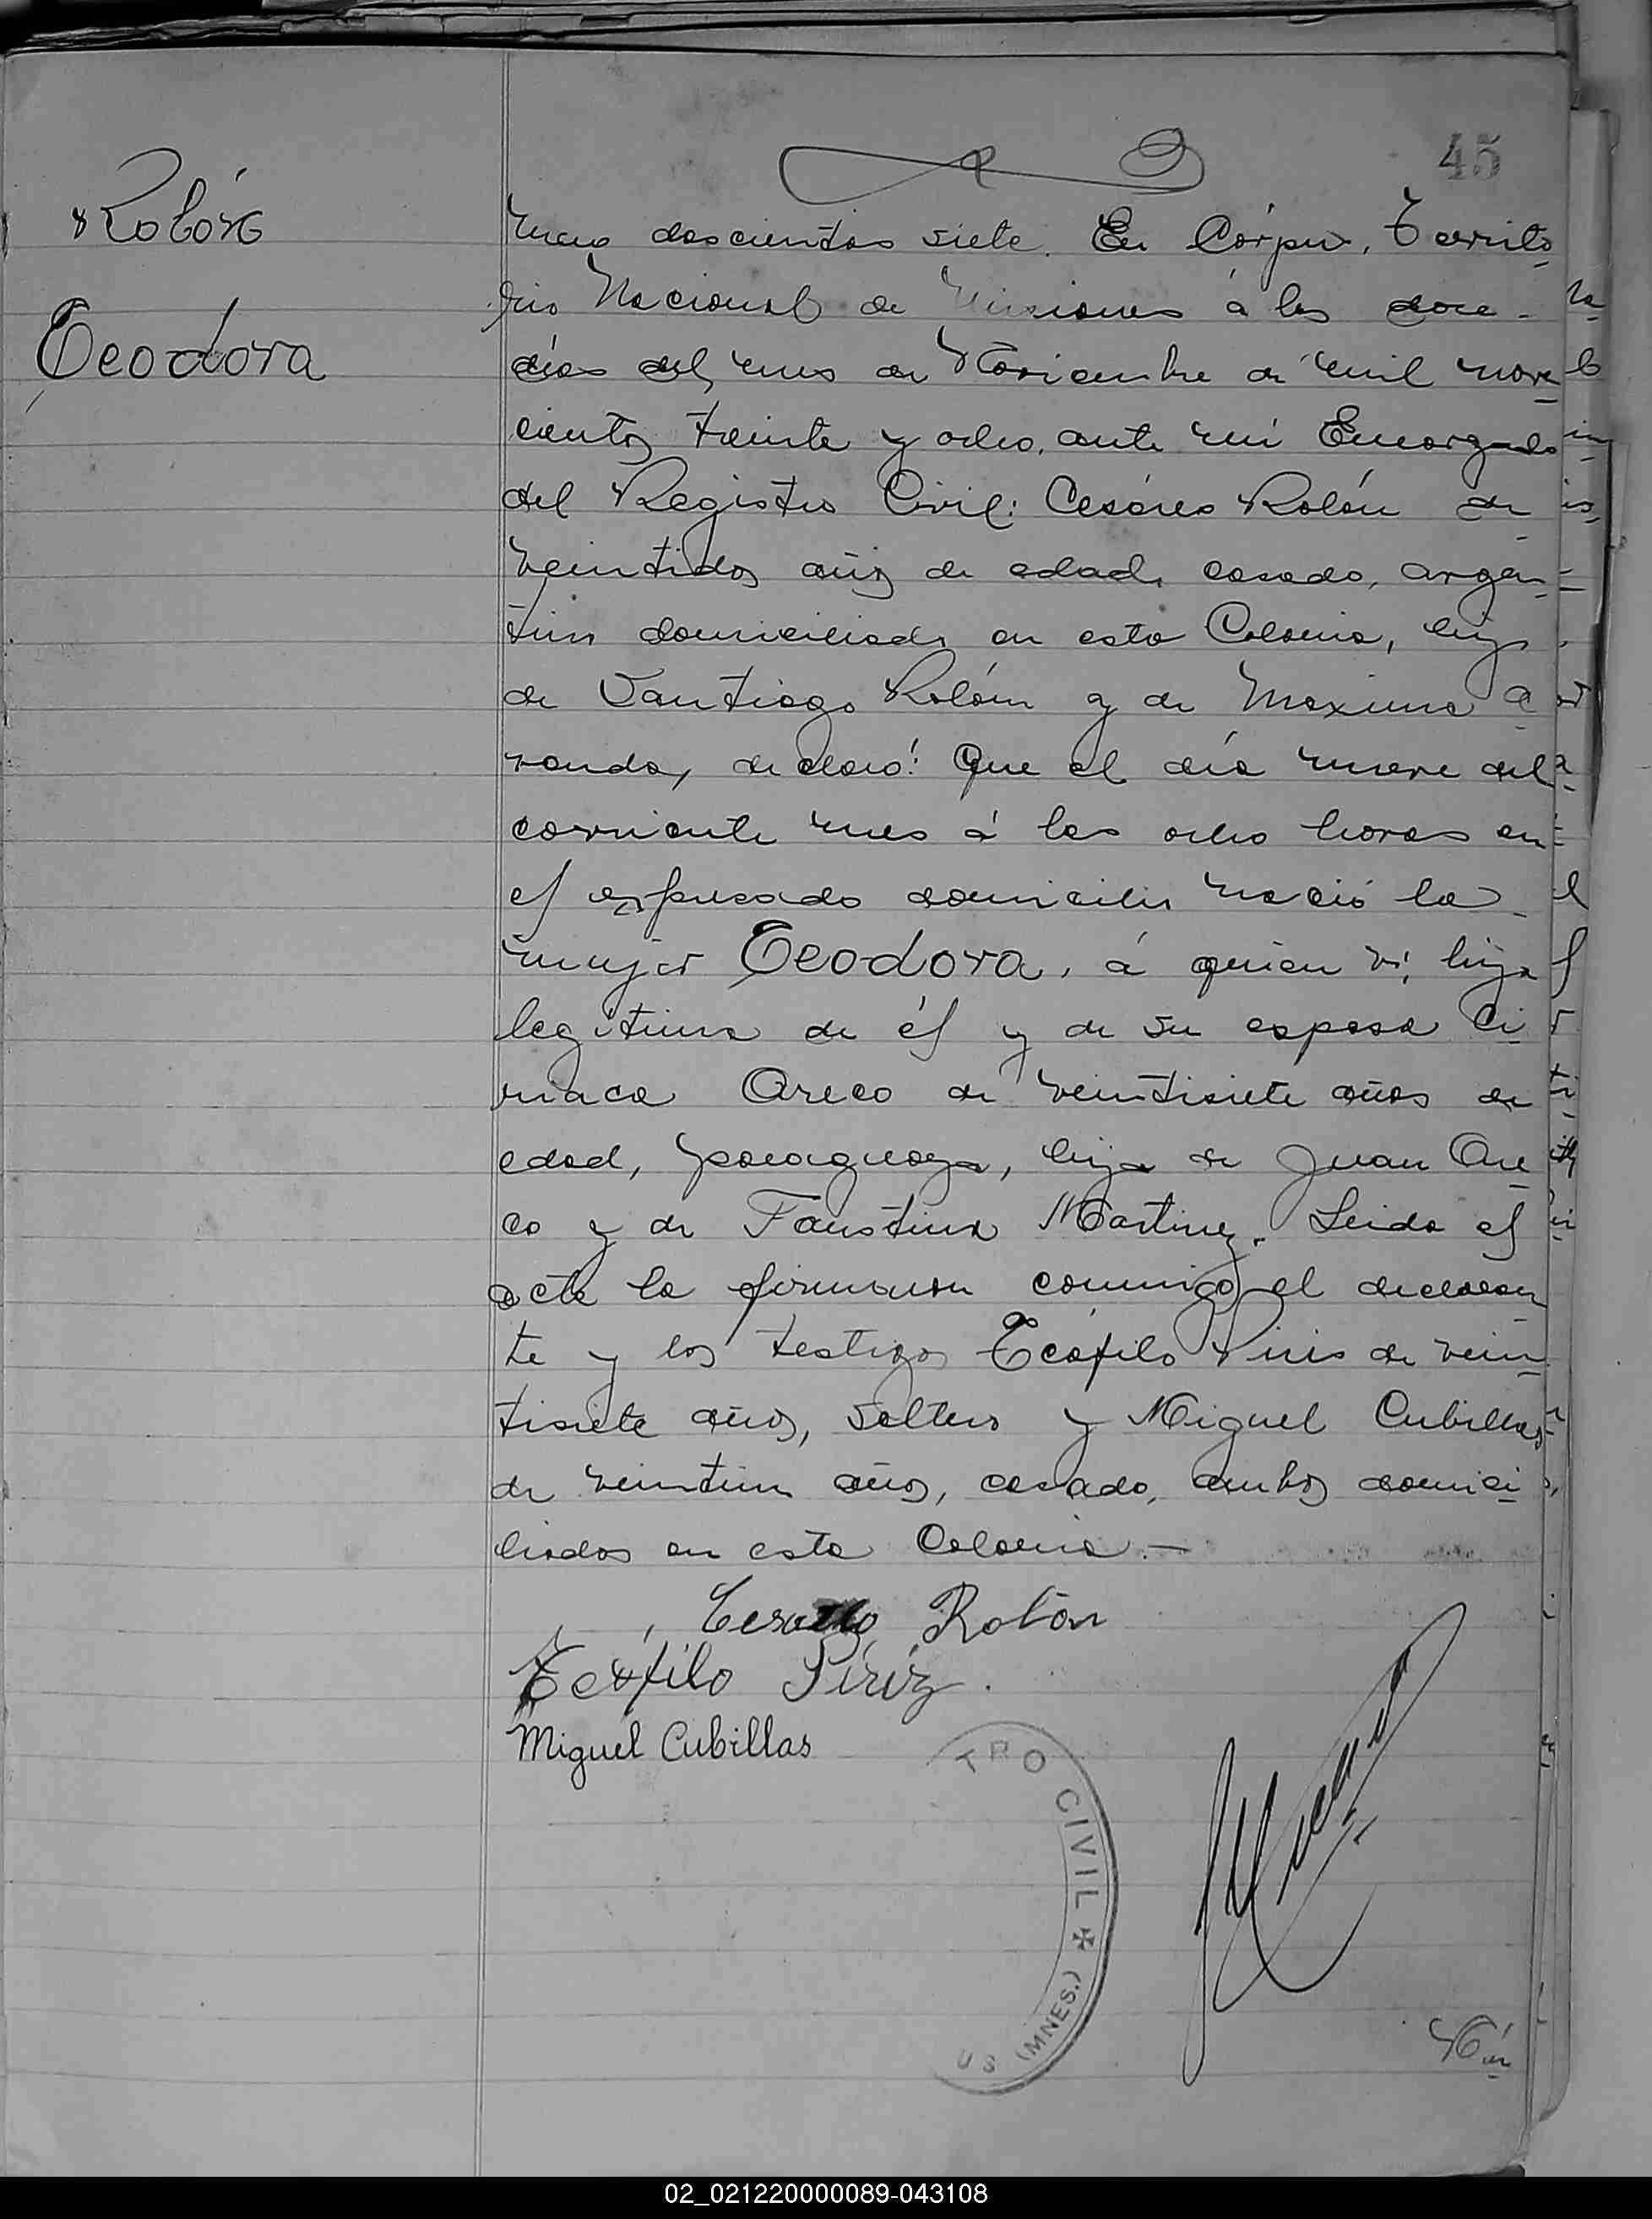 45
Rolón
Teodora
mero doscientos siete. En Córpus, Territo
rio Nacional de Misiones á los doce
días del mes de Noviembre de mil nove
cientos treinta y ocho, ante mí Encargado
del Registro Civil: Cesáreo Rolón de
veintidos años de edad, casado, argen
tino domiciliado en esta Colonia, hijo
de Santiago Rolón y de Maxima A
randa, declaró: Que el día nueve del
corriente mes á las ocho horas en
el expresado domicilio nació la
mujer Teodora, á quien ví, hija
legitima de él y de su esposa Ci
riaca Areco de veintisiete años de
edad, paraguaya, hija de Juan Are
co y de Faustina Martinez. Leida el
acta la firmaron conmigo el declaran
te y los testigos Teófilo Piris de vein
tisiete años, soltero y Miguel Cubillas
de veintiun años, casado, ambos domici
liados en esta Colonia.—
Cesareo Rolón
Teófilo Píríz.
Miguel Cubillas
TRO CIVIL ✠
US (MNES.)
02_021220000089-043108